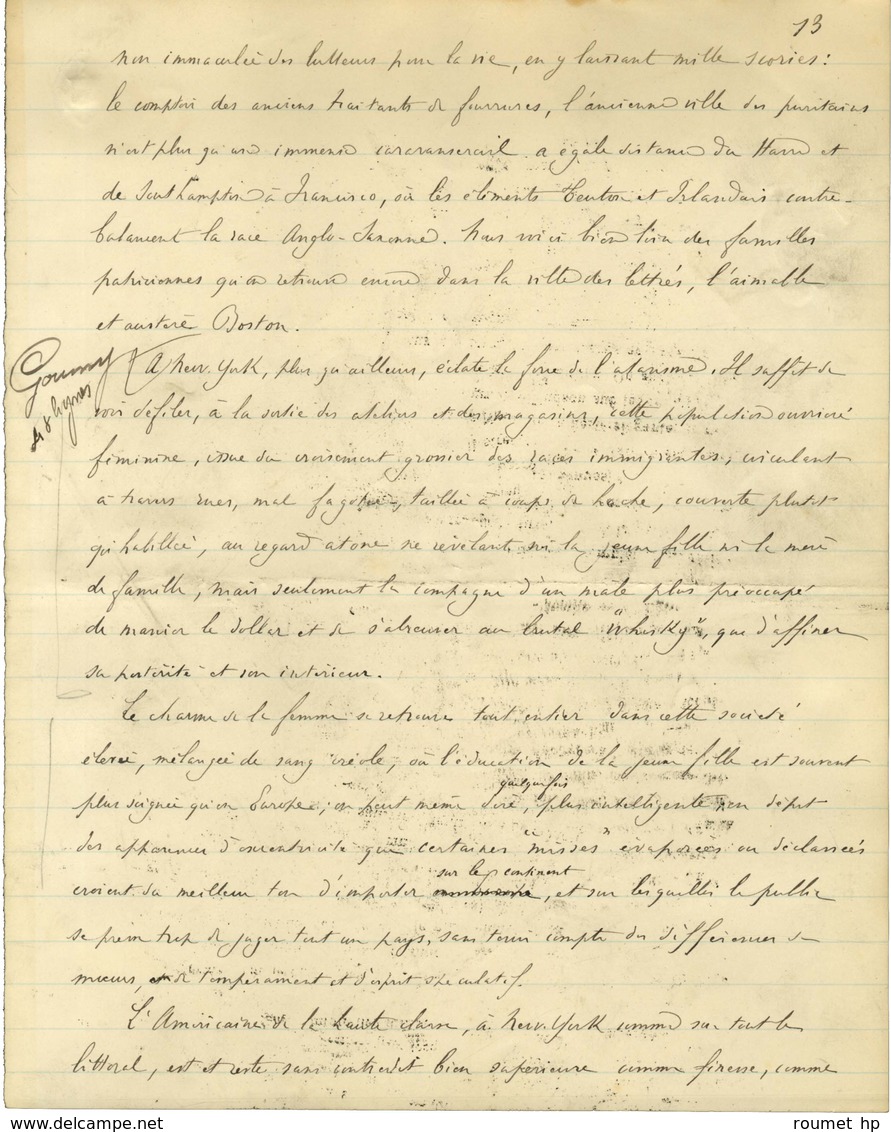 13
non immaculée des lutteurs pour la vie, en y laissant mille scories :
le comptoir des anciens traitants de fourrures, l'ancienne ville des puritains
n'est plus qu'un immense caravansérail à égale distance du Havre et
de Southampton à Francisco, où les éléments Teuton et Irlandais contre-
balancent la race Anglo-Saxonne. Nous voici bien loin des familles
patriciennes qu'on retrouve encore dans la ville des lettrés, l'aimable
et austère Boston.
A New-York, plus qu'ailleurs, éclate la force de l'atavisme. Il suffit de
voir défiler, à la sortie des ateliers et des magasins, cette population ouvrière
féminine, issue du croisement grossier des races immigrantes, circulant
à travers rues, mal fagotée, taillée à coups de hache, couverte plutôt
qu'habillée, au regard atone ne révélant ni la jeune fille ni la mère
de famille, mais seulement la compagne d'un mâle plus préoccupé
de manier le dollar et de s'abreuver au brutal "Whisky", que d'affiner
sa postérité et son intérieur.
Le charme de la femme se retrouve tout entier dans cette société
élevée, mélangée de sang créole, où l'éducation de la jeune fille est souvent
quelquefois
plus soignée qu'en Europe, on peut même dire, plus intelligente en dépit
des apparences d'excentricité que certaines "misses" évaporées ou déclassées
sur le continent
croient du meilleur ton d'importer, et sur lesquelles le public
se presse trop de juger tout un pays, sans tenir compte des différences de
mœurs, de tempérament et d'esprit spéculatif.
L'Américaine de la haute classe, à New-York comme sur tout le
littoral, est et reste sans contredit bien supérieure comme finesse, comme
roumet hp